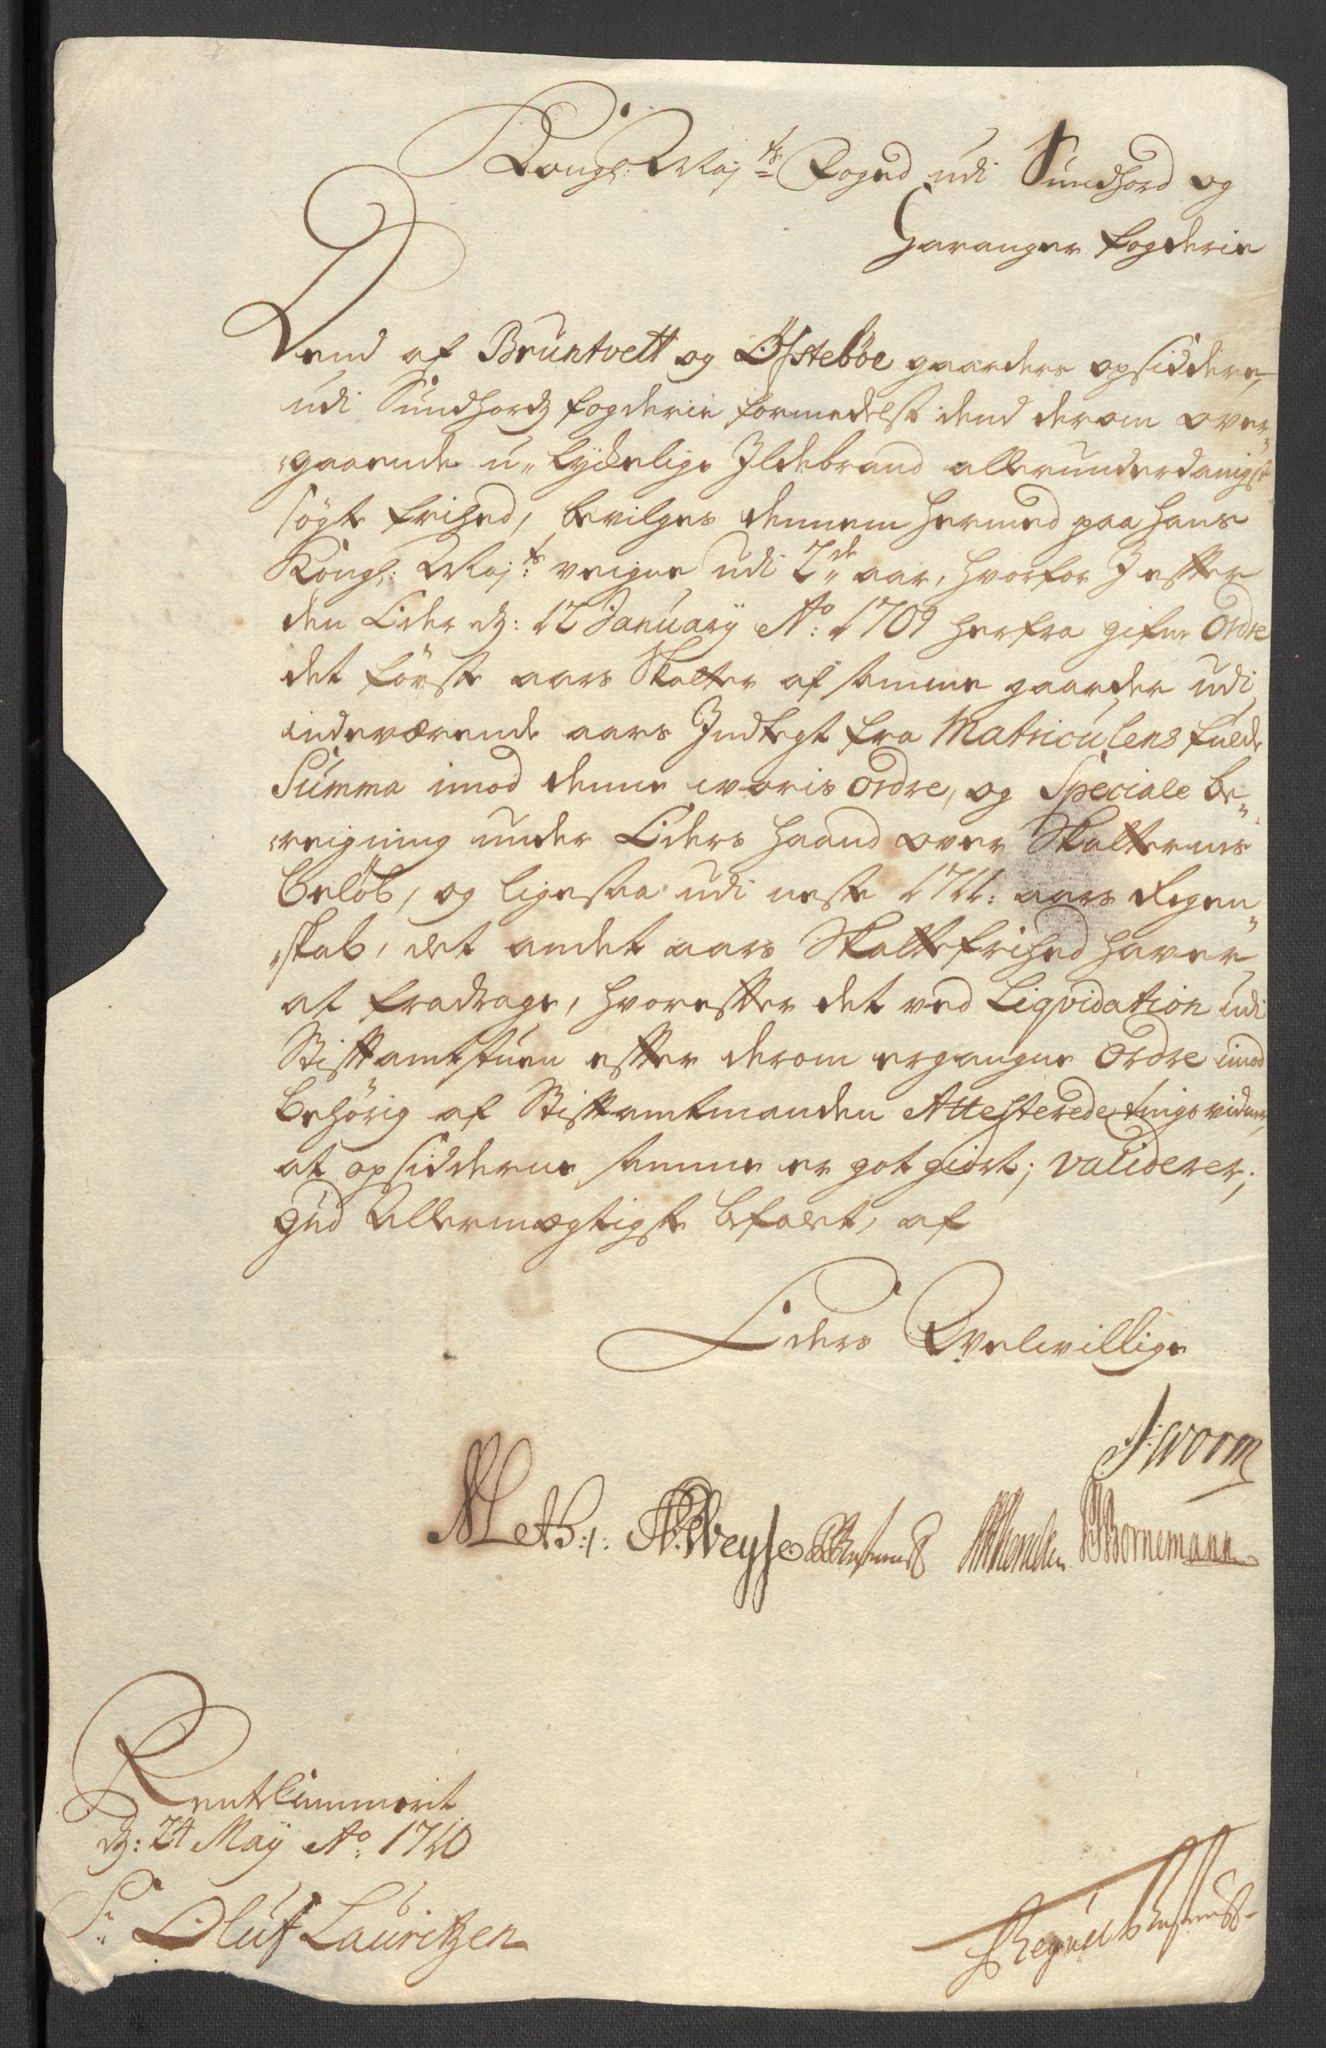 Kongl: Maj:ts Foged udi Sundhord og
Haranger fogderie
Dend af Bruntvett og Östeböe gaarders opsiddere,
udi Sundhordz fogderie formedelst dend derom over-
gaaende u-lyckelige Ildebrand allerunderdanigst
søgte frihed, bevilges dennem hermed paa hans
Kongl: Maj:ts veigne udi 2de aar, hvorfor I effter
den Eder d: 12 January Ao: 1709 herfra gifne Ordre
det første aars Skatter af samme gaarder udi
indeværende aars Indtegt fra Matriculens fulde
Summa imod denne voris Ordre, og Speciale be-
reigning under Eders haand over Skatternes
beløb, og ligesaa udi neste 1711: aars Regen-
skab, det andet aars Skattefrihed haver
at fradrage, hvoreffter det ved Liqvidation udi
Stifftamtstuen effter derom ergangne Ordre imod
behørig af Stifftamtmanden Attesterede tingsvidne,
at opsidderne samme er got giort; validerer;
Gud Allermægtigste befalet, af
Eders Velvillige
J: Worm
Meth: /: Weyse Rasmuss Bornemann
Rentekammerit
d: 24 May Ao: 1710
Sr Oluf Lauritzen